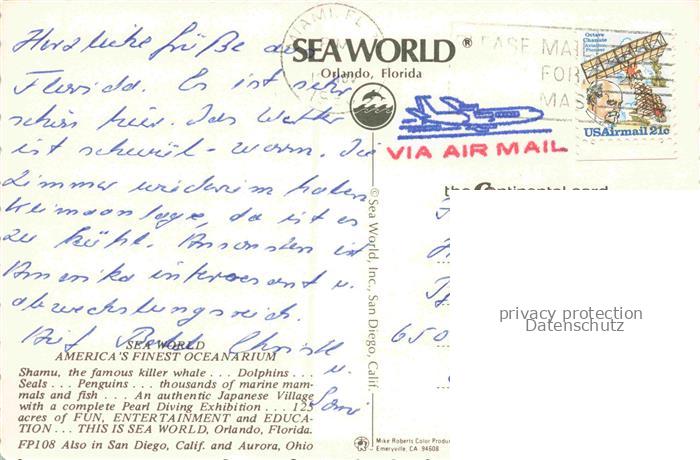 Herzliche Grüße aus
Florida. Es ist sehr
schön hier. Das Wetter
ist schwül-warm. Die
Zimmer wiederum haben
Klimaanlage, da ist es
zu kühl. Ansonsten ist
Amerika interessant u.
abwechslungsreich.
Auf Bald Christl
u.
SEA WORLD
AMERICA'S FINEST OCEANARIUM
Shamu, the famous killer whale . . . Dolphins . . .
Seals . . . Penguins . . . thousands of marine mam-
mals and fish . . . An authentic Japanese Village
with a complete Pearl Diving Exhibition . . . 125
acres of FUN, ENTERTAINMENT and EDUCA-
TION . . . THIS IS SEA WORLD, Orlando, Florida.
FP108 Also in San Diego, Calif. and Aurora, Ohio
SEA WORLD®
Orlando, Florida
MIAMI, FL
VIA AIR MAIL
© Sea World, Inc., San Diego, Calif.
Mike Roberts Color Produ
Emeryville, CA 94608
MAI
FOR
MAS
Octave
Chanute
Aviation
Pioneer
USAirmail 21c
the Continental card
650
privacy protection
Datenschutz